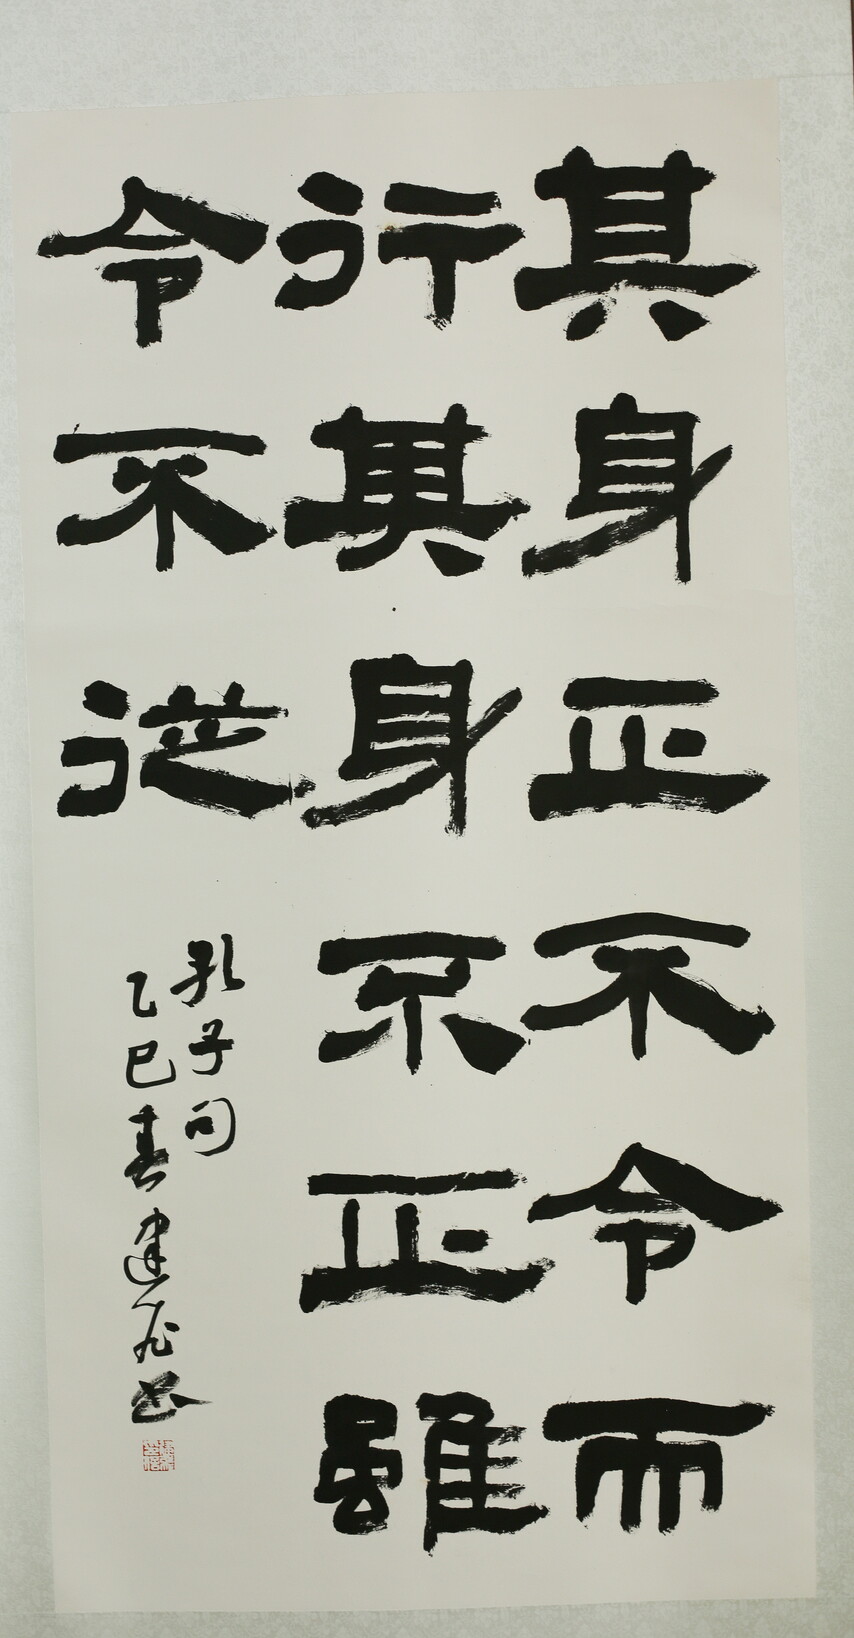 其身正不令而
行其身不正雖
令不從
孔子句
乙巳春建